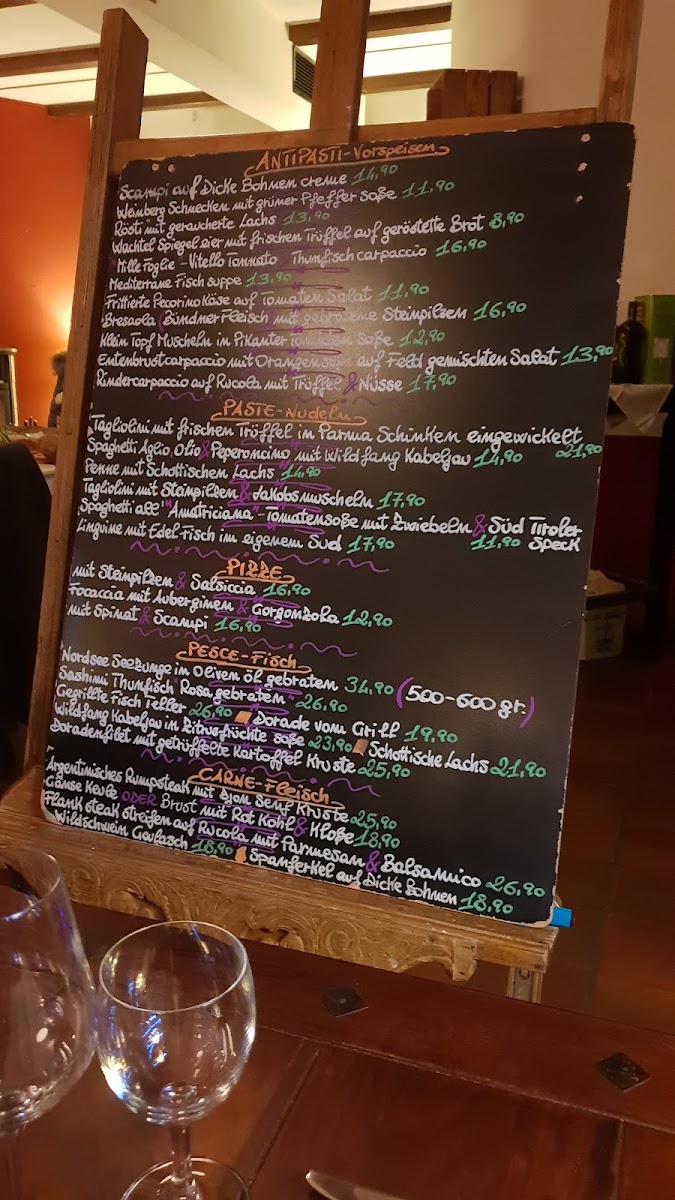 ANTIPASTI-Vorspeisen
Scampi auf Dicke Bohnen creme 14,90
Weinberg Schnecken mit grüner Pfeffer soße 11,90
Rösti mit geraucherte Lachs 13,90
Wachtel Spiegel eier mit frischen Trüffel auf geröstette Brot 8,90
Mille Foglie - Vitello Tonnato & Thunfisch carpaccio 16,90
Mediterrane Fisch suppe 13,90
Frittierte Pecorino Käse auf Tomaten Salat 11,90
Bresaola (Bündnerfleisch mit gebratene Steinpilzen 16,90
Klein Topf Muscheln in Pikanter Tomaten Soße 12,90
Entenbrust carpaccio mit Orangensoße auf Feld gemischten Salat 13,90
Rindercarpaccio auf Rucola mit Trüffel & Nüsse 17,90
PASTE-Nudeln
Tagliolini mit frischen Trüffel in Parma Schinken eingewickelt 21,90
Spaghetti Aglio, Olio & Peperoncino mit Wildfang Kabeljau 14,90
Penne mit Schottischen Lachs 14,90
Tagliolini mit Steinpilzen & Jakobsmuscheln 17,90
Spaghetti all' "Amatriciana - Tomatensoße mit Zwiebeln & Süd Tiroler Speck 11,90
Linguine mit Edel-Fisch im eigenem Sud 17,90
PIZZE
mit Steinpilzen & Salsiccia 16,90
Focaccia mit Auberginen & Gorgonzola 12,90
mit Spinat & Scampi 16,90
PESCE-Fisch
Nordsee Seezunge in Oliven öl gebraten 34,90 (500-600 gr.)
Sashimi Thunfisch Rosa gebraten 26,90
Gegrillte Fisch Teller 26,90 Dorade vom Grill 19,90
Wildfang Kabeljau in Zitrusfrüchte soße 23,90 Schottische Lachs 21,90
Doradenfilet mit getrüffelte Kartoffel Kruste 25,90
CARNE-Fleisch
Argentinisches Rumpsteak mit Djon Senf Kruste 25,90
Gänse Keule ODER Brust mit Rot Kohl & Kloße 18,90
Flank steak streifen auf Rucola mit Parmesan & Balsamico 26,90
Wildschwein Goulasch 18,90 Spanferkel auf Dicke Bohnen 18,90